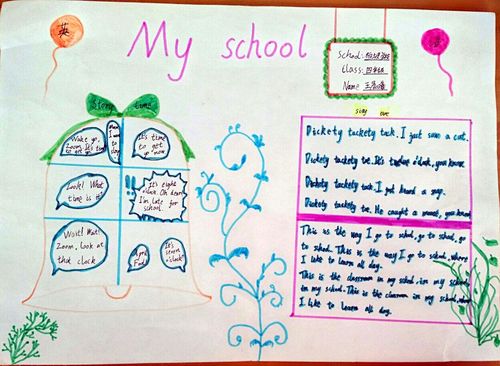 英
My school
School:
Class:
Name
Story time
sing
Wake up,
Zoom. It's time
to get up
It's time
to get
up now
Look! What
time is it?
It's eight
o'clock. Oh dear!
I'm late for
school.
Wait! Wait!
Zoom, look at
that clock
April
Fool
It's seven
o'clock!
Dickety tackety tack. I just saw a cat.
Dickety tackety te. It's twelve o'clock, you know
Dickety tackety tack. I just heard a
Dickety tackety te. He caught a mouse, you know
This is the way I go to school, go to school, go
to school. This is the way I go to school, where
I like to learn all day.
This is the classroom in my school, in my school,
in my school. This is the classroom in my school, where
I like to learn all day.